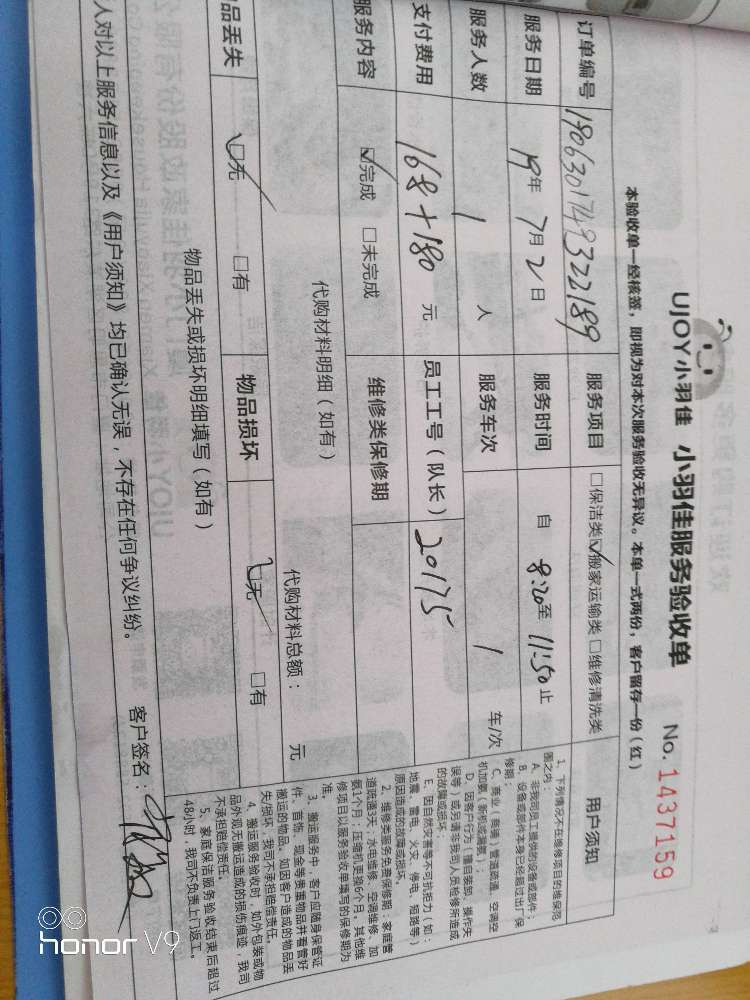 UJOY小羽佳 小羽佳服务验收单 No. 1437159
本验收单一经核签，即视为对本次服务验收无异议。本单一式两份，客户留存一份（红）
订单编号 190630174332189 服务项目 □保洁类 ☑搬家运输类 □维修清洗类
服务日期 19年 7月 2日 服务时间 自 8:20 至 11:50 止
服务人数 1 人 服务车次 1 车/次
支付费用 168+180 元 员工工号（队长） 20175
服务内容 ☑完成 □未完成 维修类保修期
代购材料明细（如有） 代购材料总额： 元
品丢失 ☑无 □有 物品损坏 ☑无 □有
物品丢失或损坏明细填写（如有）
人对以上服务信息以及《用户须知》均已确认无误，不存在任何争议纠纷。 客户签名：
用户须知
1、下列情况不在维修项目的维保范
围之内：
A、非我司员工提供的设备或部件；
B、设备或部件本身已经超过出厂保
修期；
C、商业（商铺）管道疏通、空调空
机加氨（新机或漏氨）；
D、因客户行为（擅自装卸、操作失
误等）或另请非我司人员检修所造成
的故障或损坏。
E、因自然灾害等不可抗拒力（如：
地震、雷电、火灾、停电、短路等）
原因造成的故障或损坏。
2、维修类服务免费保修期：家庭管
道疏通3天；水电维修、空调维修、加
氨1个月；压缩机更换6个月；其他维
修项目以服务验收单填写的保修期为
准。
3、搬运服务中，客户应随身保管证
件、首饰、现金等贵重物品并看管好
搬运的物品。如因客户造成的物品丢
失/损坏，我司不承担赔偿责任。
4、搬运服务验收时，如外包装或物
品外观无搬运造成的损伤痕迹，我司
不承担赔偿责任。
5、家庭保洁服务验收结束后超过
48小时，我司不负责上门返工。
honor V9